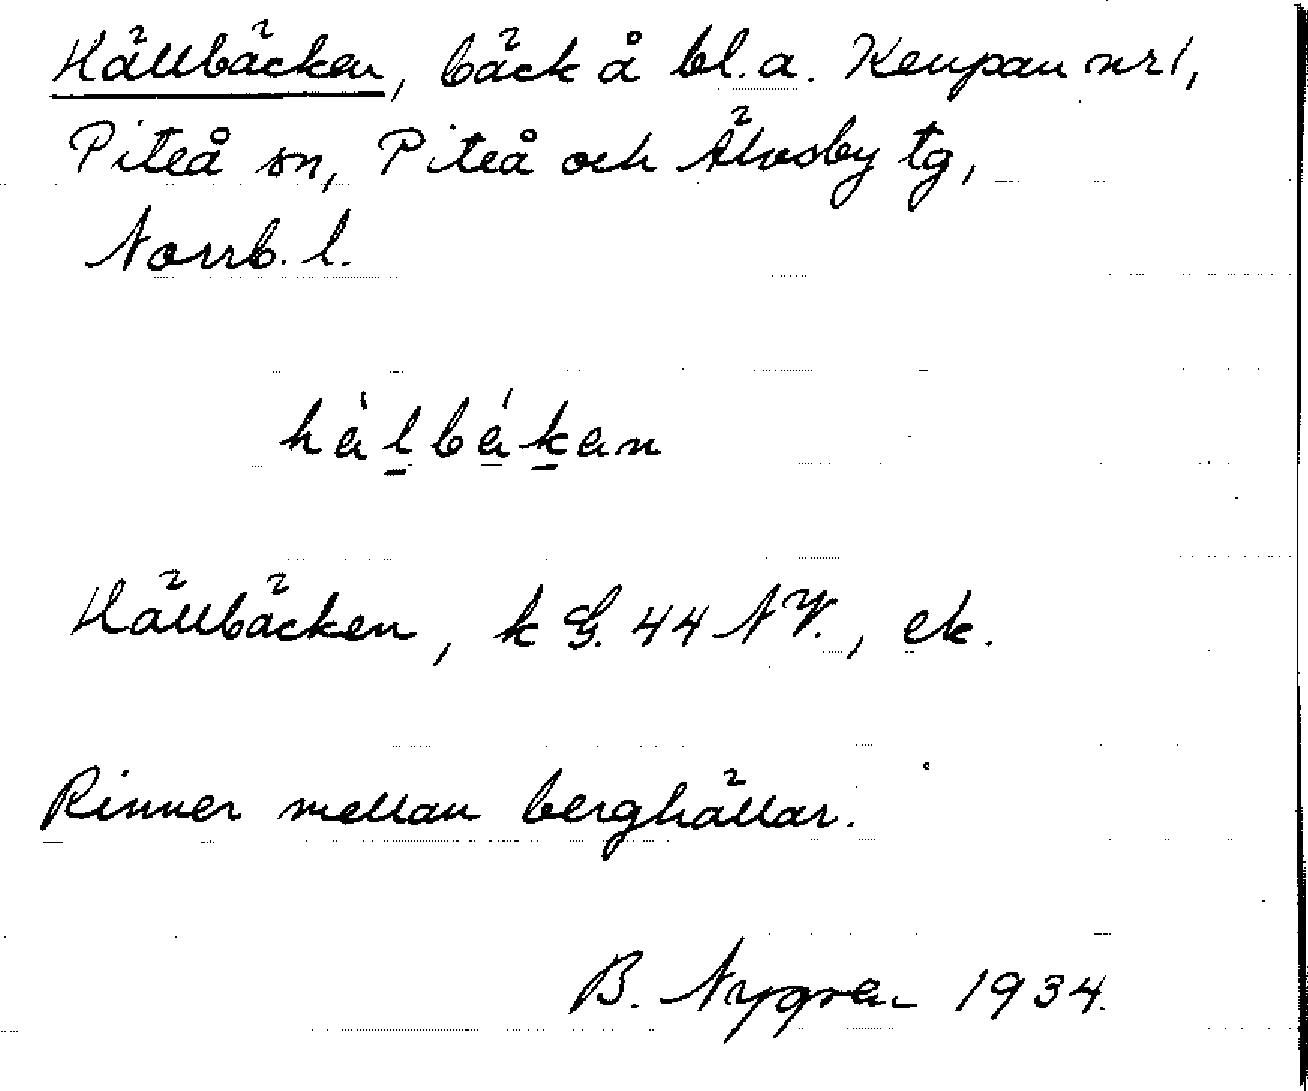 Hällbäcken, bäck å bl.a. Keupau nr 1,
Piteå sn, Piteå och Älvsby tg,
Norrb. l.
Hällbäcken, k G. 44 NV., ek.
Rinner mellan berghällar.
B. Nygren 1934.